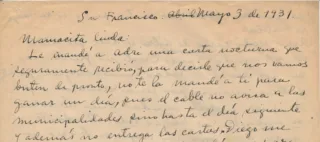 Sn Francisco. Abril Mayo 3 de 1931.
Mamacita linda:
Le mandé a adre una carta nocturna que
seguramente recibió, para decirle que nos vamos
de pronto, no te la mandé a ti para
ganar un día, pues el cable no avisa a las
municipalidades sino hasta el día siguiente
y además no entrega las cartas. Diego me